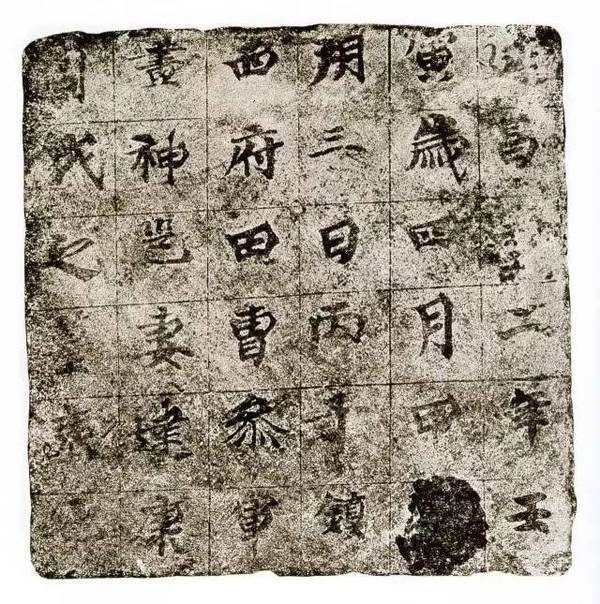 延昌二年壬
寅歲四月甲
朔三日丙子鎮
西府田曹參軍
畫神邕妻建康
周氏之